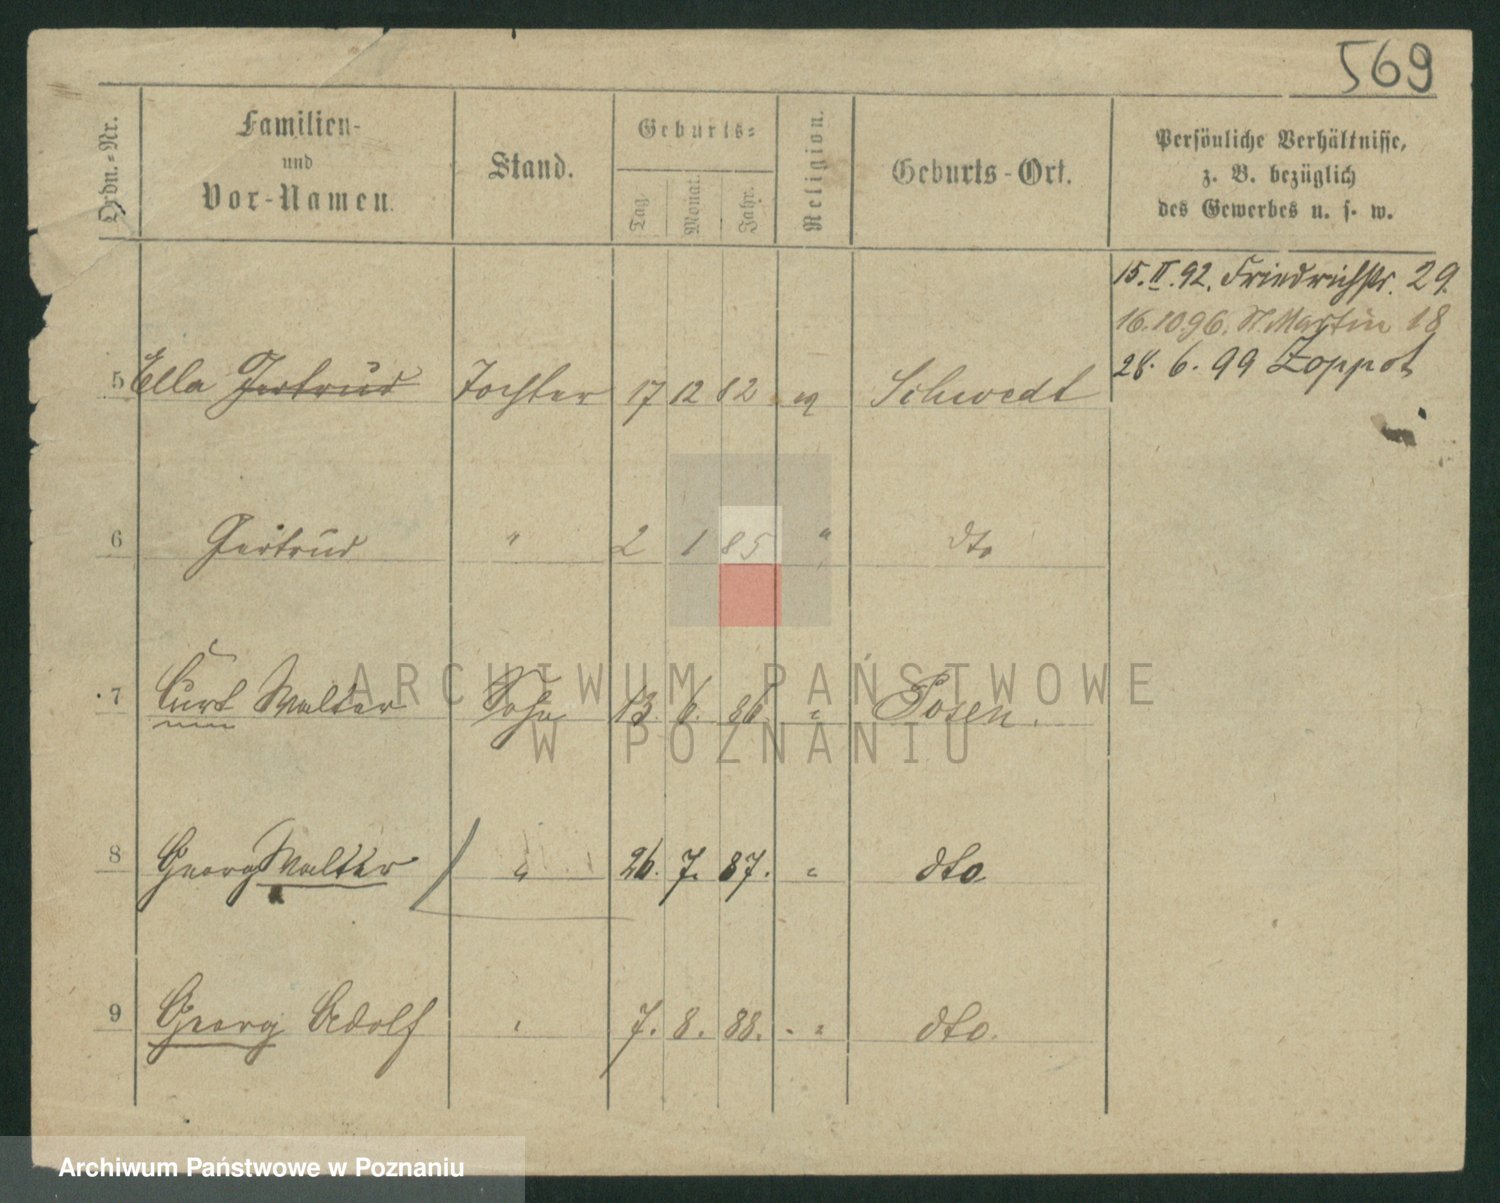 569
Ordn.-Nr.
Familien-
und
Vor-Namen.
Stand.
Geburts-
Tag.
Monat.
Jahr.
Religion.
Geburts-Ort.
Persönliche Verhältnisse,
z. B. bezüglich
des Gewerbes u. s. w.
15. II. 92. Friedrichstr. 29.
16.10 96. St Martin 18
28. 6. 99 Zoppot
5 Ella Gertrud Tochter 17 12 82 ev Schwedt
6 Gertrud " 2 1 85 " dto
7 Curt Walter Sohn 13. 6. 86 " Posen.
8 Georg Walter " 26. 7. 87. " dto
9 Georg Adolf " 7. 8. 88. " dto.
ARCHIWUM PAŃSTWOWE
W POZNANIU
Archiwum Państwowe w Poznaniu